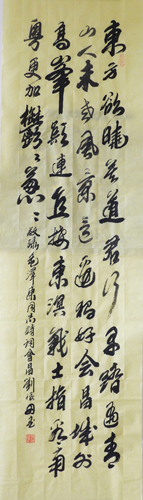 東方欲曉莫道君行早踏遍青
山人未老風景這邊獨好會昌城外
高峯顛連直接東溟戰士指看南
粵更加鬱鬱葱葱 敬録毛澤東同志詩詞會昌劉